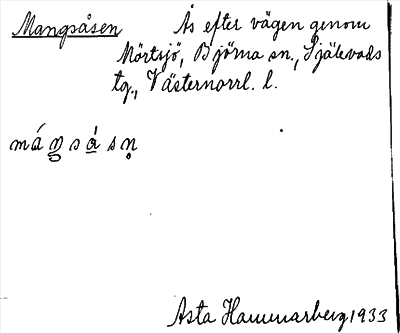 Mangsåsen Ås efter vägen genom
Mörtsjö, Björna sn., Själevads
tg., Västernorrl. l.
máŋsåsn̥
Asta Hammarberg 1933